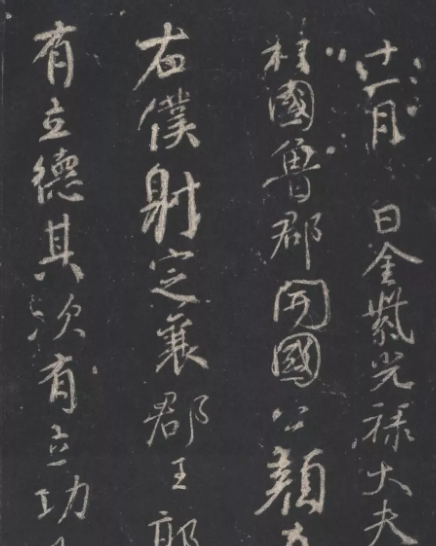 十一月 日金紫光禄大夫
柱國魯郡開國公顔
右僕射定襄郡王郭
有立德其次有立功